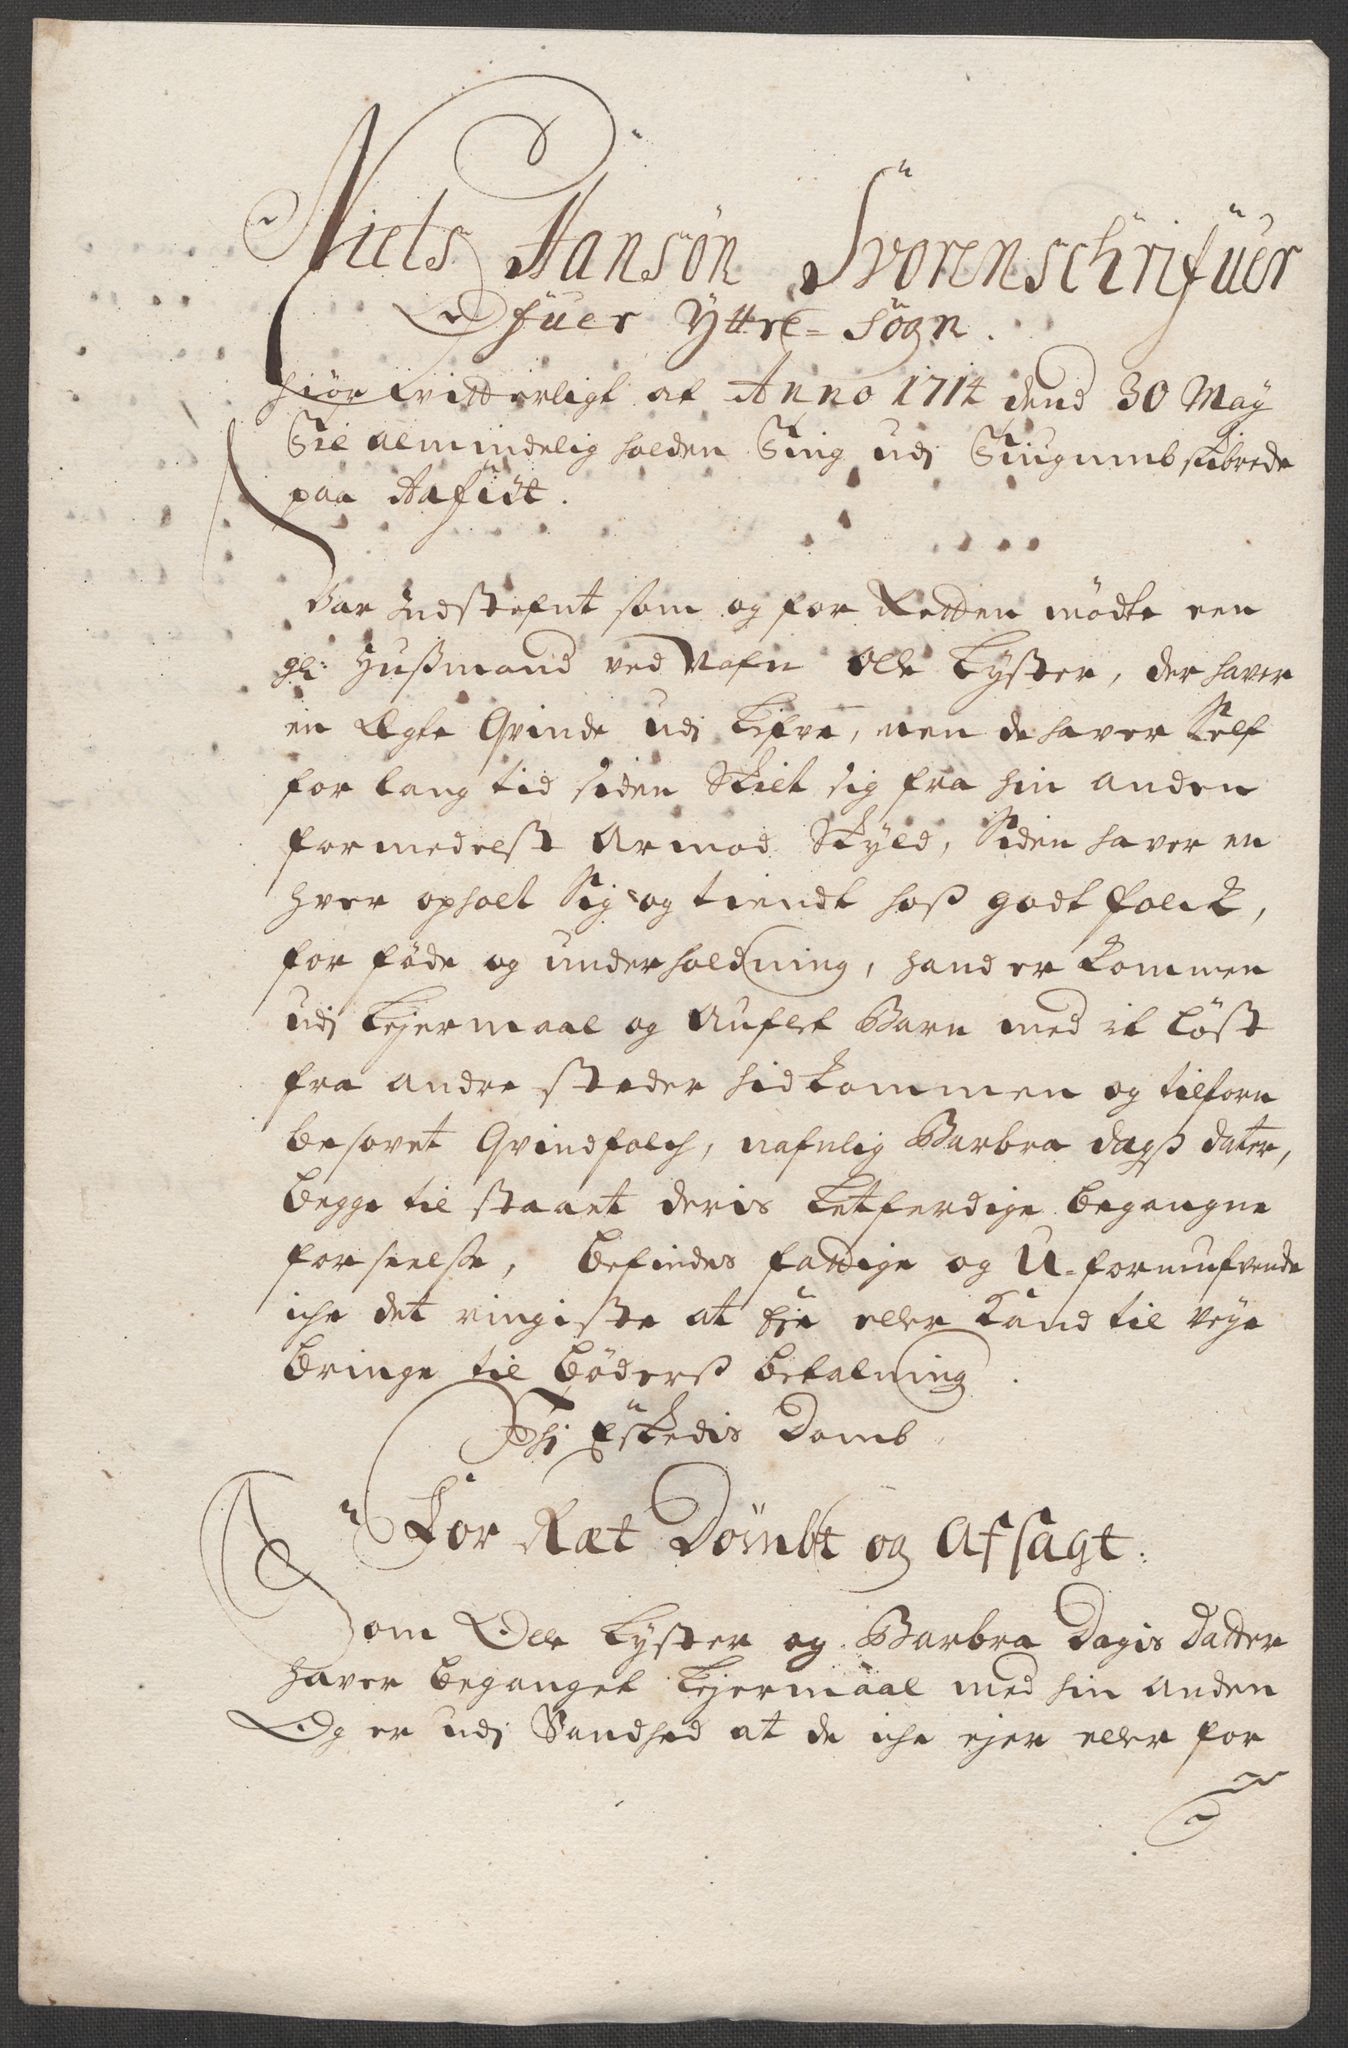 Niels Hansøn Svorenschrifuer
Ofuer Yttre-Sogn.
Giør witterligt at Anno 1714 dend 30 May
Til almindelig holden Ting udj skibrede
paa Aafiøt.
Var Indstefnt som og for Retten mødte een
gl: Hussmand ved Nafn Olle Lyster, der haver
en Egte Qvinde udj Lifve, men de haver Self
for lang tid siden Skilt sig fra hin anden
formedelst Armod Skyld, Siden haver en
hver opholt Sig og tiendt hoss godt folck,
for føde og underholdning, hand er kommen
udj Lejermaal og Auflet Barn med it Løst
fra andre steder hidkommen og tilforn
besovet Qvindfolch, nafnlig Barbra dagss dater,
begge til staaet deris Letferdige begangne
forseelse, befindes fattige og U-formufvende
iche det ringiste at eje eller kand til veye
bringe til bøderss betalning.
Thj Eskedis Domb
For Ræt Dømbt og Afsagt:
Som Olle Lyster og Barbra Dagis Datter
haver beganget Lejermaal med hin anden
Og er udj Sandhed at de iche ejer eller for